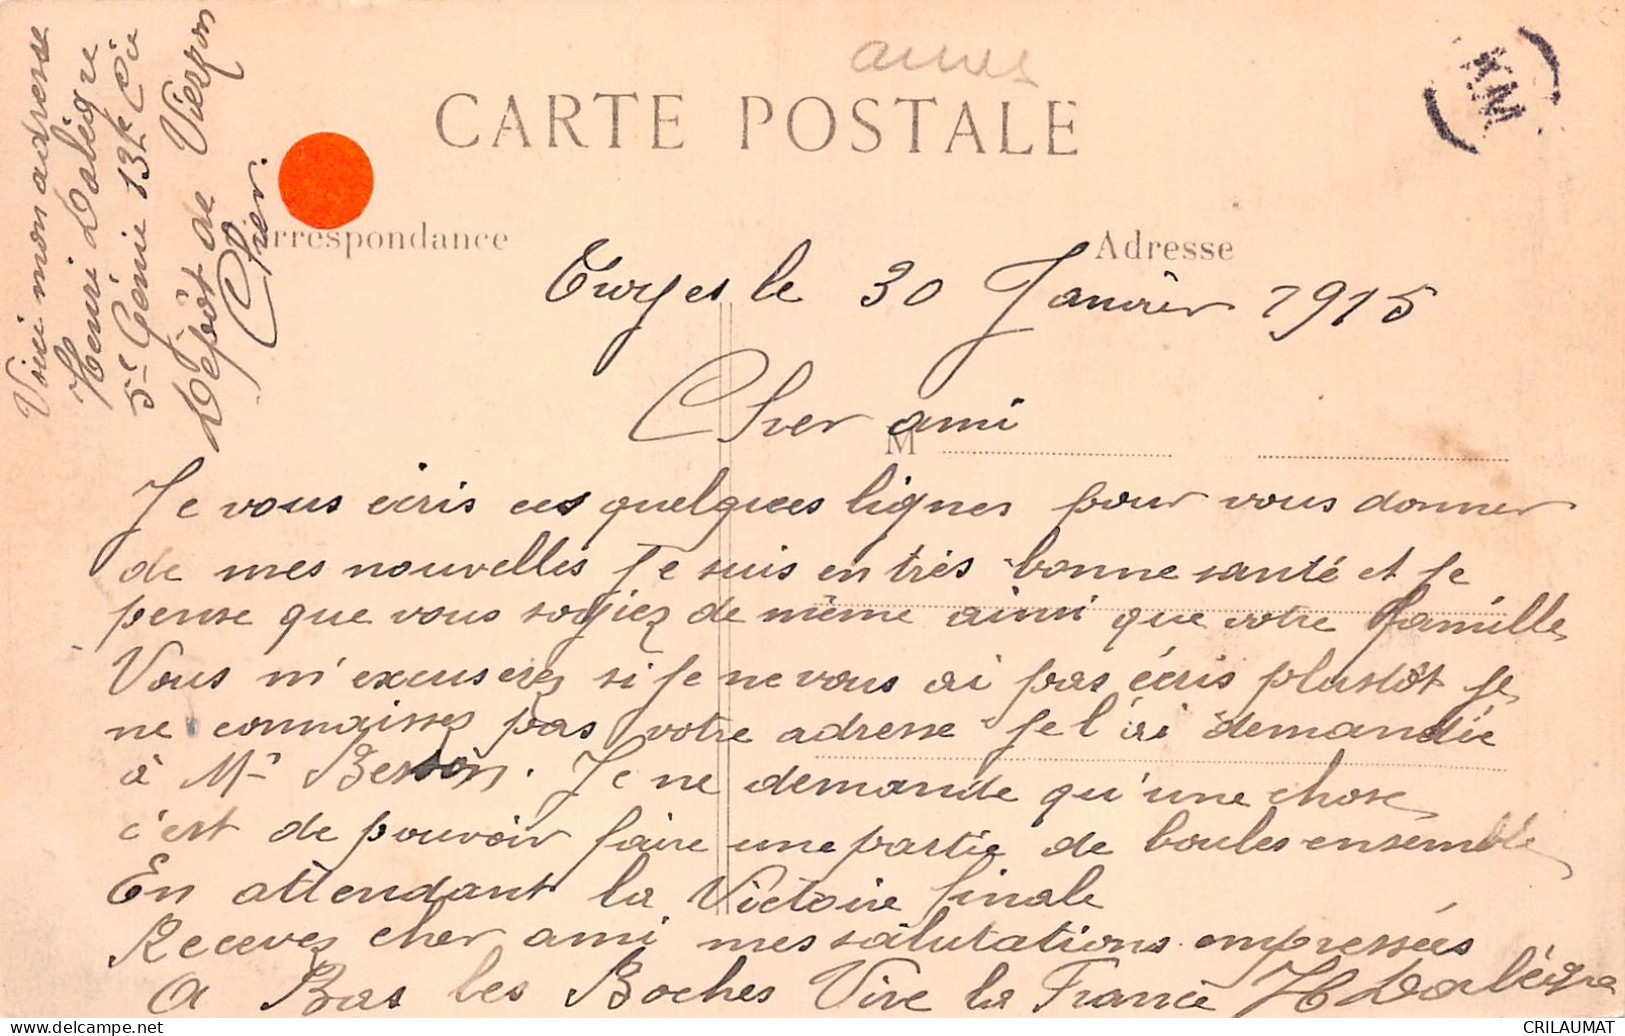 Voici mon adresse
Henri Dalègre
5e Génie 13e Cie
Dépôt de Vierzon
Cher.
CARTE POSTALE
KM
Correspondance
Adresse
le 30 Janvier 1915
Cher ami
M
Je vous écris ces quelques lignes pour vous donner
de mes nouvelles Je suis en très bonne santé et je
pense que vous soyiez de même ainsi que votre famille
Vous m'excuserez si je ne vous ai pas écris plustôt je
ne connaisses pas votre adresse je l'ai demandée
à Mr Besson. Je ne demande qu'une chose
c'est de pouvoir faire une partie de boules ensemble
En attendant la Victoire finale
Recevez cher ami mes salutations empressées
A Bas les Boches Vive la France H Dalègre
CRILAUMAT
© delcampe.net